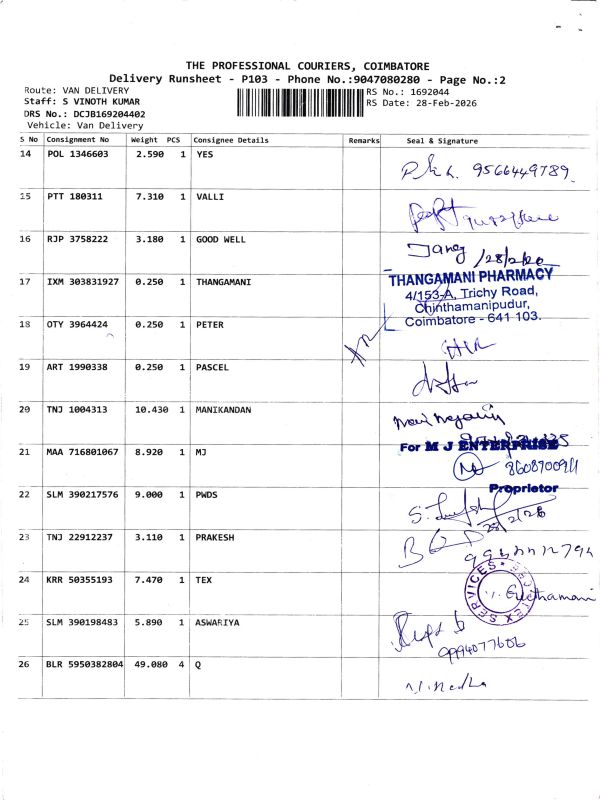 THE PROFESSIONAL COURIERS, COIMBATORE
Delivery Runsheet - P103 - Phone No.:9047080280 - Page No.:2
Route: VAN DELIVERY
RS No.: 1692044
Staff: S VINOTH KUMAR
RS Date: 28-Feb-2026
DRS No.: DCJB169204402
Vehicle: Van Delivery
S No Consignment No Weight PCS Consignee Details Remarks Seal & Signature
14 POL 1346603 2.590 1 YES
9566449789
15 PTT 180311 7.310 1 VALLI
16 RJP 3758222 3.180 1 GOOD WELL
17 IXM 303831927 0.250 1 THANGAMANI
THANGAMANI PHARMACY
4/153-A, Trichy Road,
Chinthamanipudur,
Coimbatore - 641 103.
18 OTY 3964424 0.250 1 PETER
19 ART 1990338 0.250 1 PASCEL
20 TNJ 1004313 10.430 1 MANIKANDAN
21 MAA 716801067 8.920 1 MJ
For M J ENTERPRISE
Proprietor
22 SLM 390217576 9.000 1 PWDS
28/2/26
23 TNJ 22912237 3.110 1 PRAKESH
24 KRR 50355193 7.470 1 TEX
SERVICES
25 SLM 390198483 5.890 1 ASWARIYA
9994077606
26 BLR 5950382804 49.080 4 Q